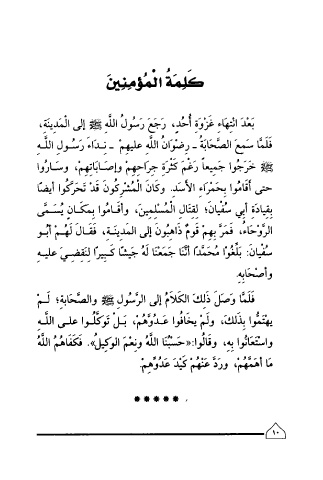 كَلِمَةُ الْمُؤْمِنِينَ
بَعْدَ انْتِهَاءِ غَزْوَةِ أُحُدٍ، رَجَعَ رَسُولُ اللَّهِ ﷺ إلى الْمَدِينَةِ،
فَلَمَّا سَمِعَ الصَّحَابَةُ ـ رِضْوَانُ اللَّهِ عليهم ـ نِدَاءَ رَسُولِ اللَّهِ
ﷺ خَرَجُوا جَمِيعاً رَغْمَ كَثْرَةِ جِرَاحِهِمْ وإصَابَاتِهِمْ، وسَارُوا
حتى أقَامُوا بِحَمْرَاءِ الأسَدِ. وكَانَ الْمُشْرِكُونَ قَدْ تَحَرَّكُوا أيضًا
بِقِيَادَةِ أبي سُفْيَانَ؛ لِقِتَالِ الْمُسْلِمِينَ، وأقَامُوا بِمَكَانٍ يُسَمَّى
الرَّوْحَاءَ، فَمَرَّ بِهِمْ قَوْمٌ ذَاهِبُونَ إلى الْمَدِينَةِ، فَقَالَ لَهُمْ أبُو
سُفْيَانَ: بَلِّغُوا مُحَمَّدًا أنَّنَا جَمَعْنَا لَهُ جَيْشًا كَبِيرًا لِنَقْضِيَ عليهِ
وأصْحَابِهِ.
فَلَمَّا وَصَلَ ذَلِكَ الكَلَامُ إلى الرَّسُولِ ﷺ والصَّحَابَةِ؛ لَمْ
يَهْتَمُّوا بِذَلِكَ، ولَمْ يخَافُوا عَدُوَّهُمْ، بَلْ تَوَكَّلُوا على اللَّهِ
واسْتَعَانُوا بِهِ، وقَالُوا: «حَسْبُنَا اللَّهُ ونِعْمَ الوَكِيلُ». فَكَفَاهُمُ اللَّهُ
مَا أهَمَّهُمْ، ورَدَّ عَنْهُمْ كَيْدَ عَدُوِّهِمْ.
* * * * *
١٠